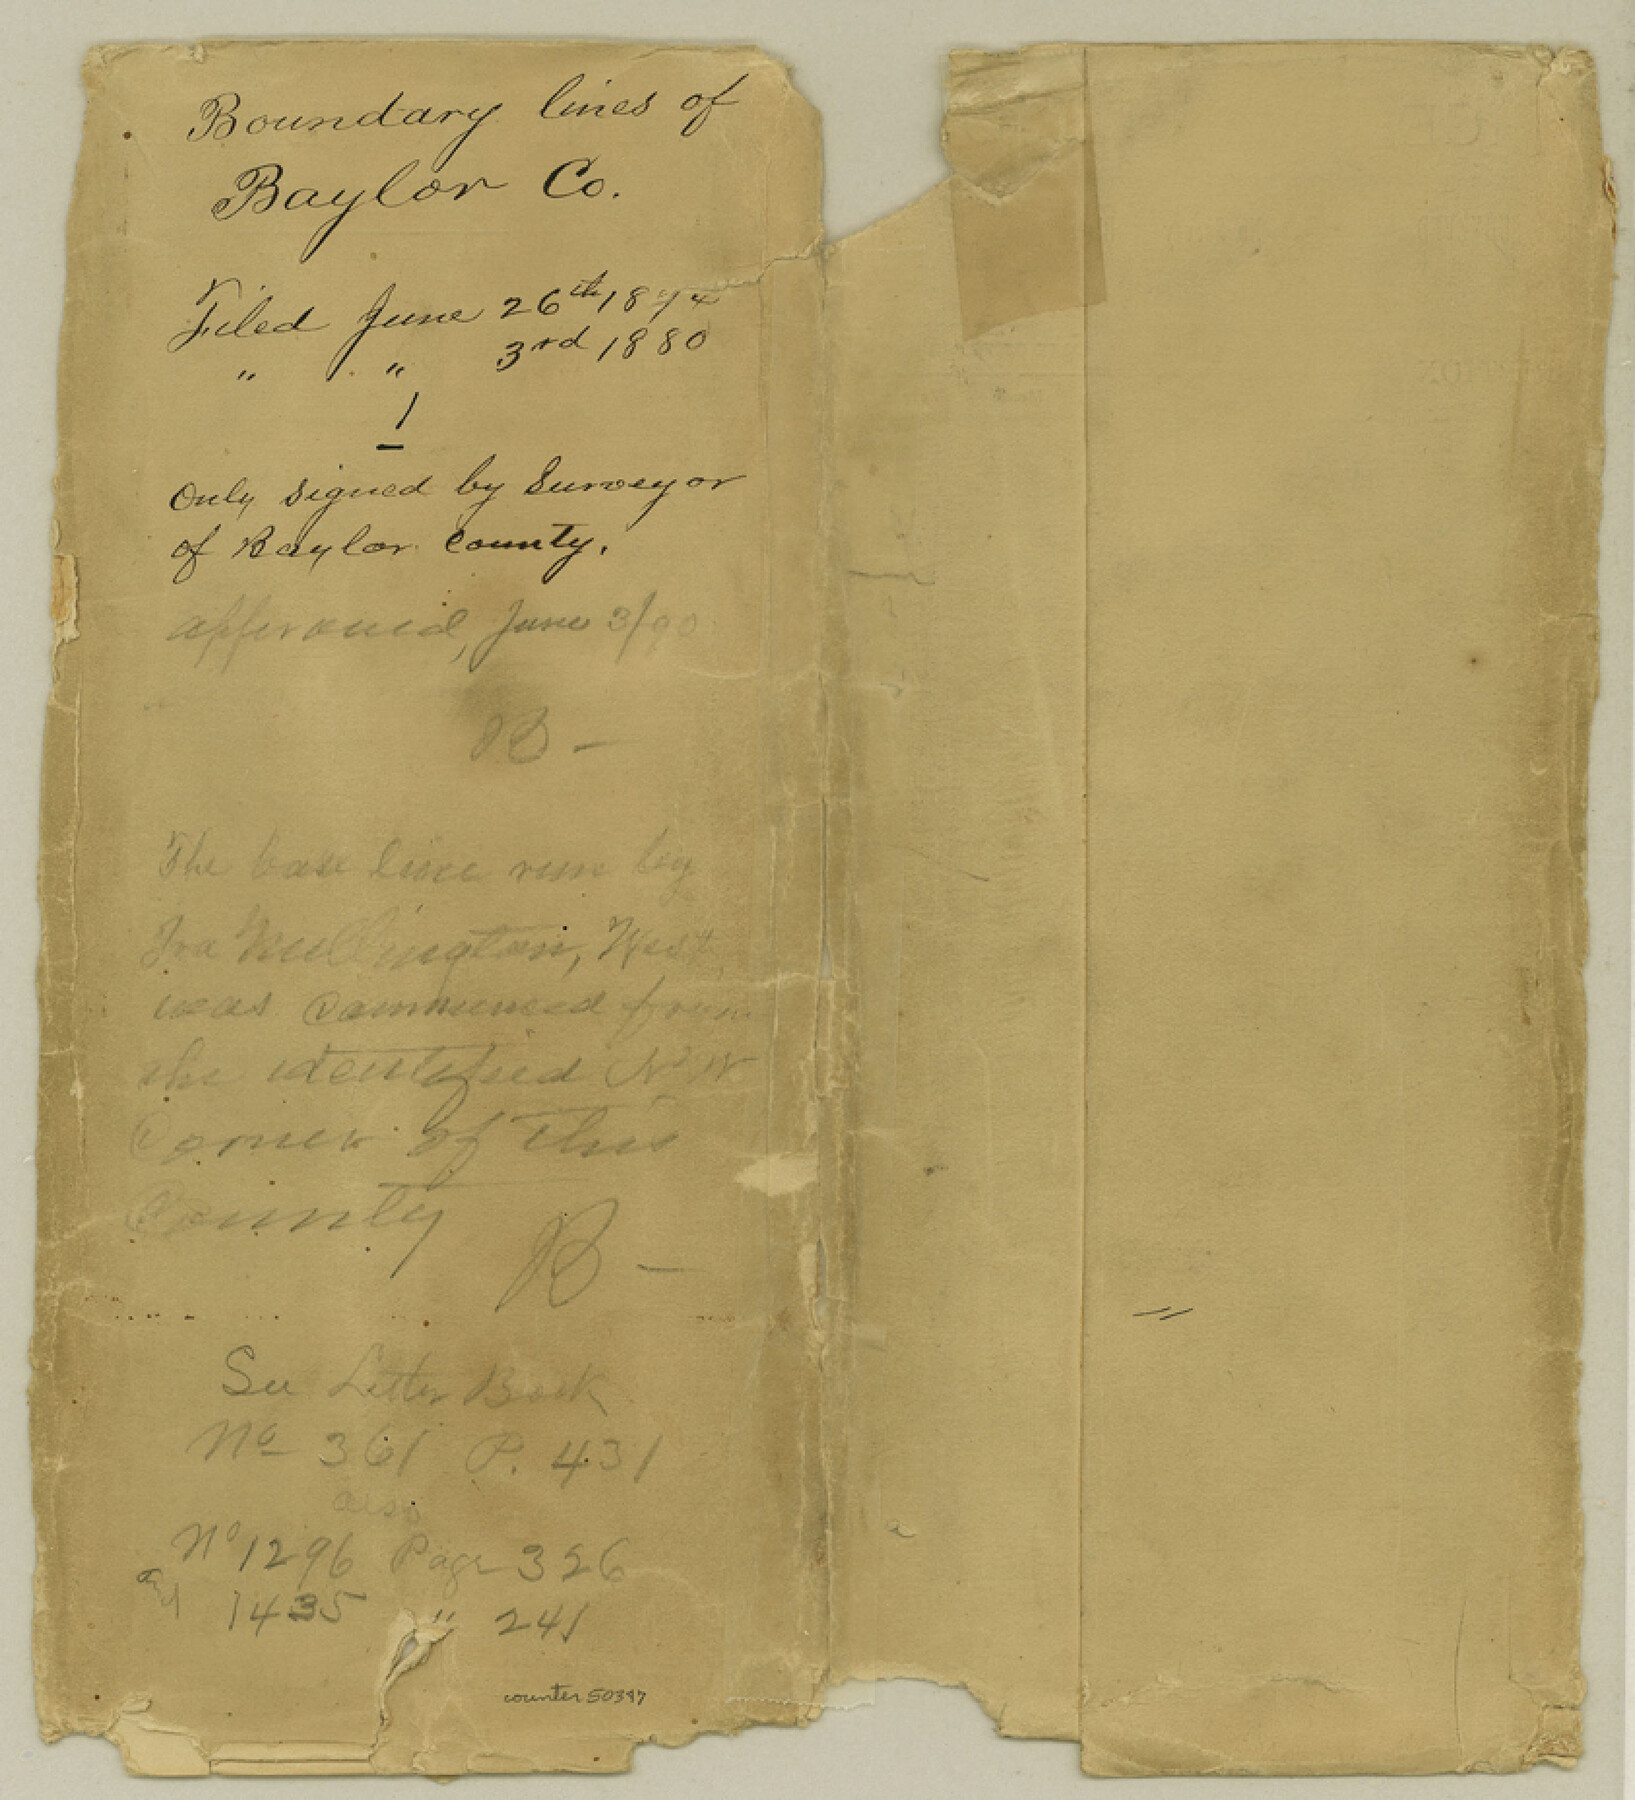 Boundary lines of
Baylor Co.
Filed June 26th 1874
" " 3rd 1880
1
Only signed by Surveyor
of Baylor County.
approved, June 3/90
B -
The base line run by
Ira, West
was commenced from
the identified N W
Corner of this
County
B -
See Letter Book
No 361 P. 431
also
No 1296 Page 326
And 1435 " 241
counter 50397